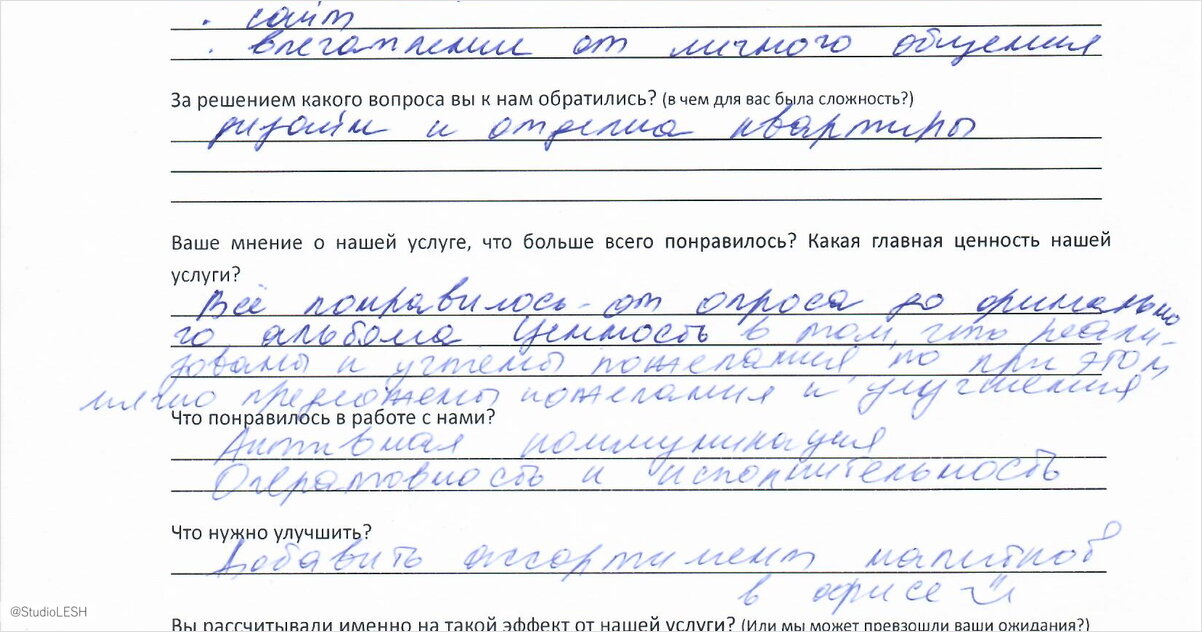 · сайт
· впечатление от личного общения
За решением какого вопроса вы к нам обратились? (в чем для вас была сложность?)
дизайн и отделка квартиры
Ваше мнение о нашей услуге, что больше всего понравилось? Какая главная ценность нашей
услуги?
Всё понравилось - от опроса до финально
го альбома Ценность в том, что реали-
зованы и учтены пожелания, но при этом
мягко предложены пожелания и улучшения
Что понравилось в работе с нами?
Активная коммуникация
Оперативность и исполнительность
Что нужно улучшить?
Добавить ассортимент напитков
в офисе
@StudioLESH
Вы рассчитывали именно на такой эффект от нашей услуги? (Или мы может превзошли ваши ожидания?)